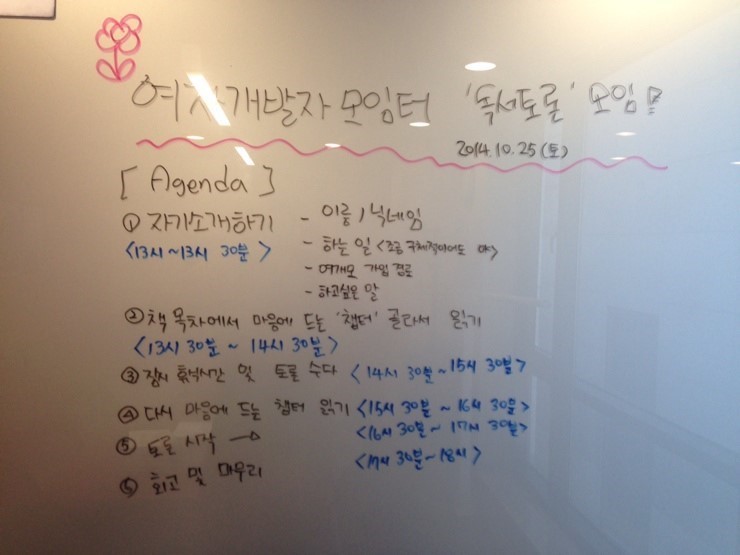 여자개발자모임터 '독서토론' 모임!!
2014.10.25(토)
[Agenda]
① 자기소개하기 - 이름/닉네임
<13시~13시 30분> - 하는 일 <조금 구체적이어도 야>
- 여개모 가입 경로
- 하고싶은 말
② 책 목차에서 마음에 드는 '챕터' 골라서 읽기
<13시 30분 ~ 14시 30분>
③ 잠시 휴식시간 및 토론 수다 <14시 30분~15시 30분>
④ 다시 마음에 드는 챕터 읽기 <15시 30분 ~ 16시 30분>
⑤ 토론 시작 → <16시 30분~ 17시 30분>
⑥ 회고 및 마무리 <17시 30분~18시>